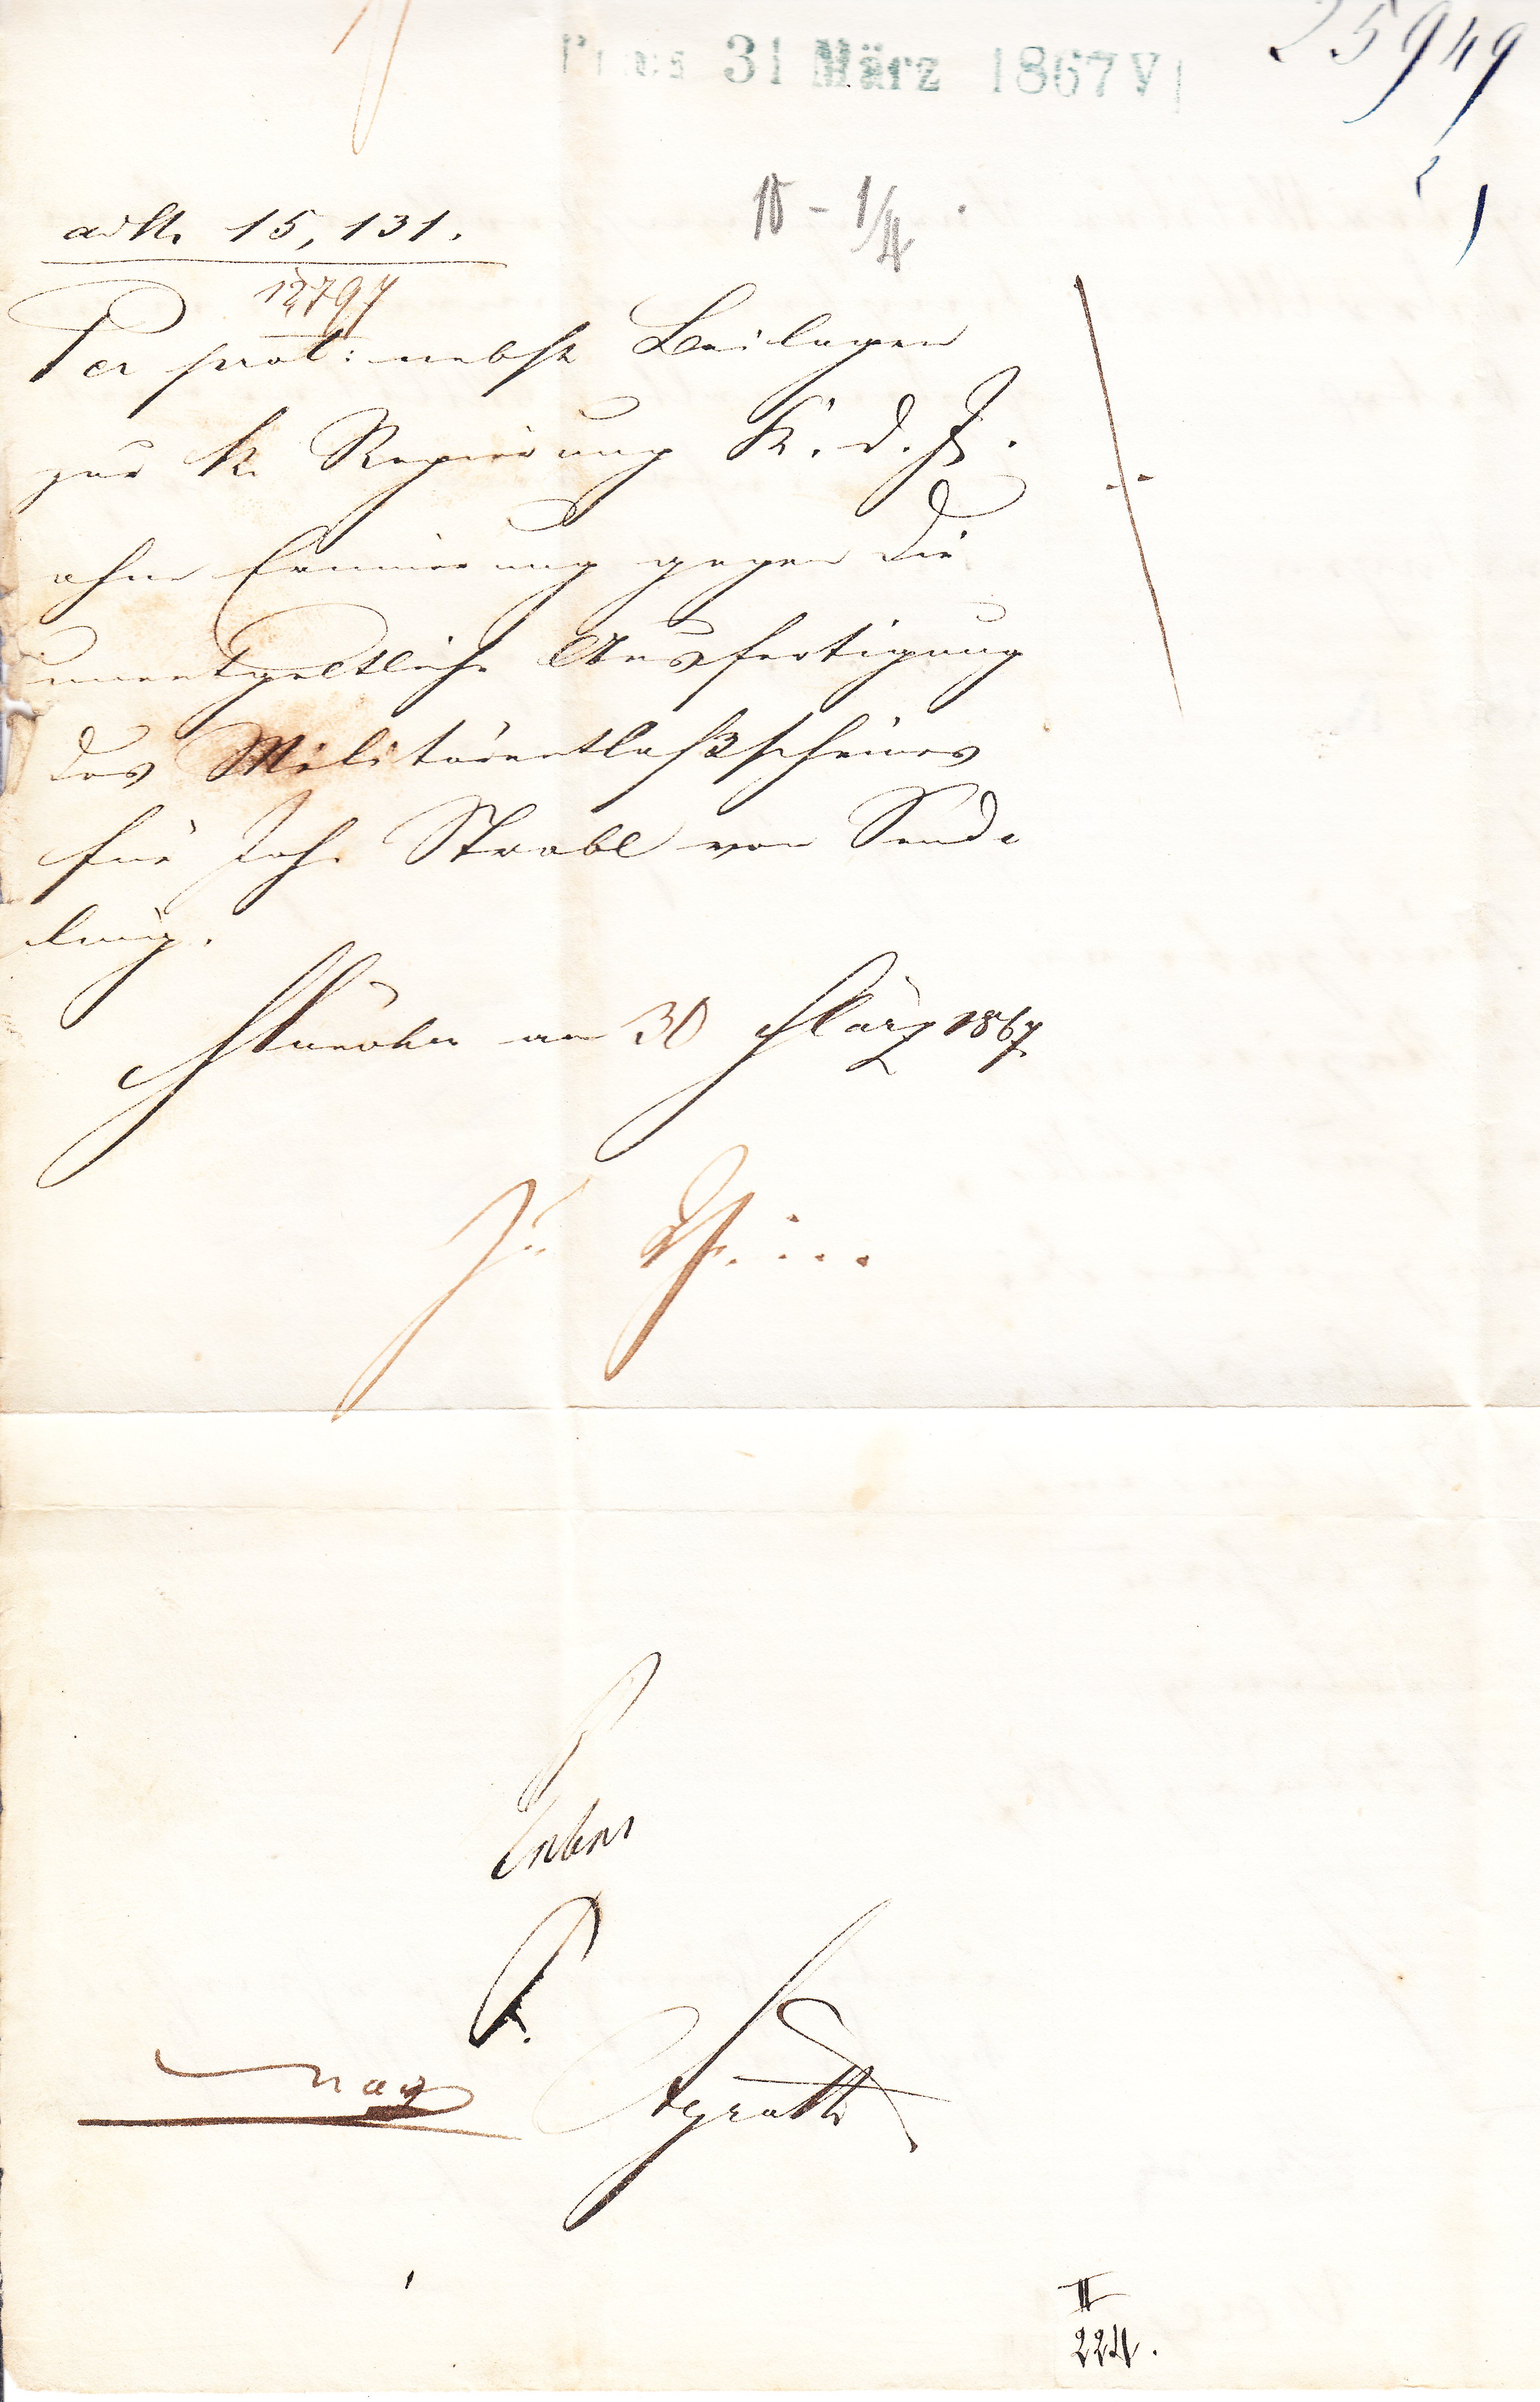 Präs 31 März 1867 VI
25949
ad N. 15,131.
12797
Per prot: nebst Beilagen
zur k. Regierung K. d. J.
ohne Erinnerung gegen die
unentgeltliche Ausfertigung
des Militärentlaßscheines
für Joh. Strobl von Send-
ling.
München am 30 März 1867
II
224.